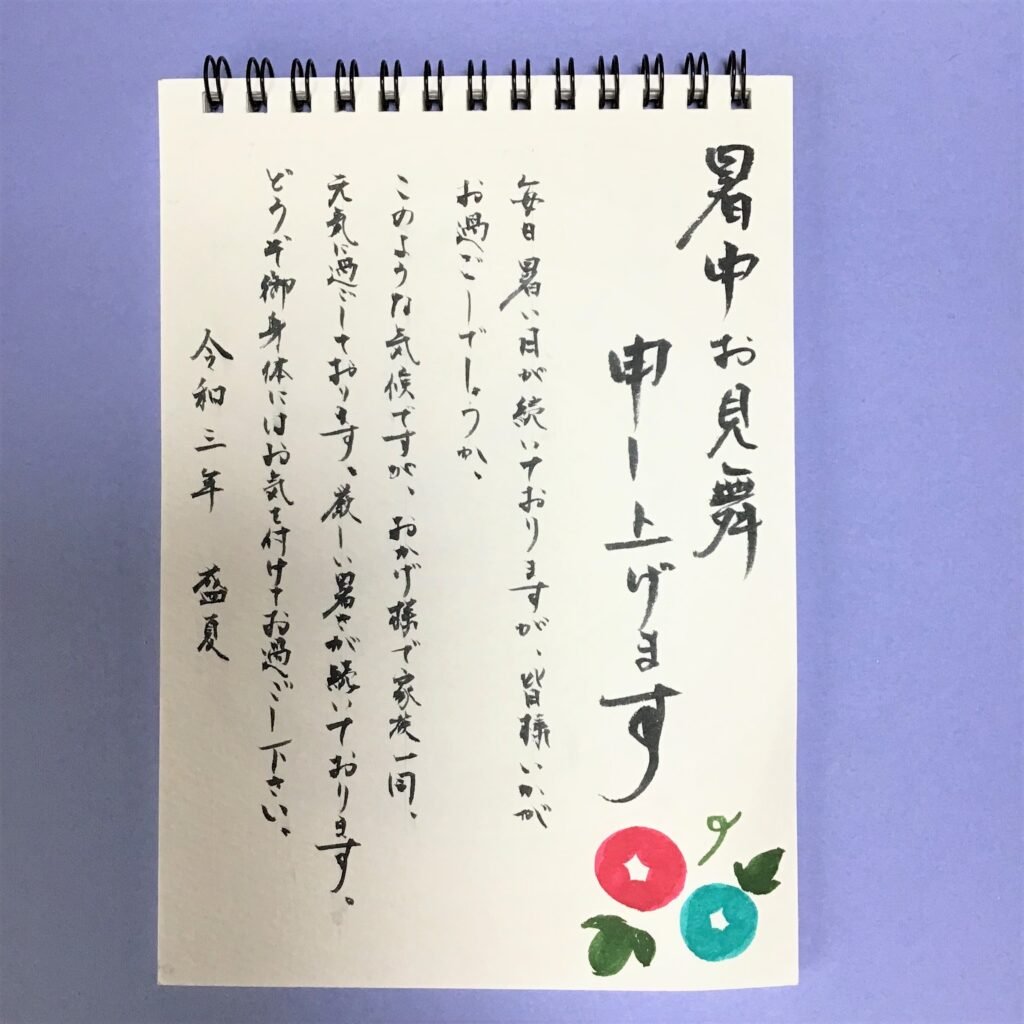 暑中お見舞
申し上げます
毎日暑い日が続いておりますが、皆様いかが
お過ごしでしょうか、
このような気候ですが、おかげ様で家族一同、
元気に過ごしております、厳しい暑さが続いております。
どうぞ御身体にはお気を付けてお過ごし下さい、
令和三年 盛夏